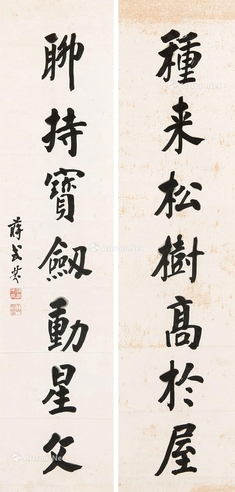 種来松樹高於屋
聊持寶劔動星文
蒋式芬